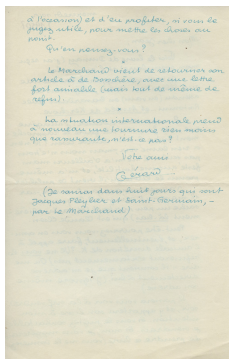 à l'occasion) et d'en profiter, si vous le
jugez utile, pour mettre les choses au
point.
Qu'en pensez-vous ?
*
Le Marchand vient de retourner son
article à de Boschère, avec une lettre
fort amicale (mais tout de même de
refus).
*
La situation internationale prend
à nouveau une tournure rien moins
que rassurante, n'est-ce pas ?
Votre ami
Gérard
(Je saurai dans huit jours qui sont
Jacques Pleyber et Saint-Germain, –
par Le Marchand)